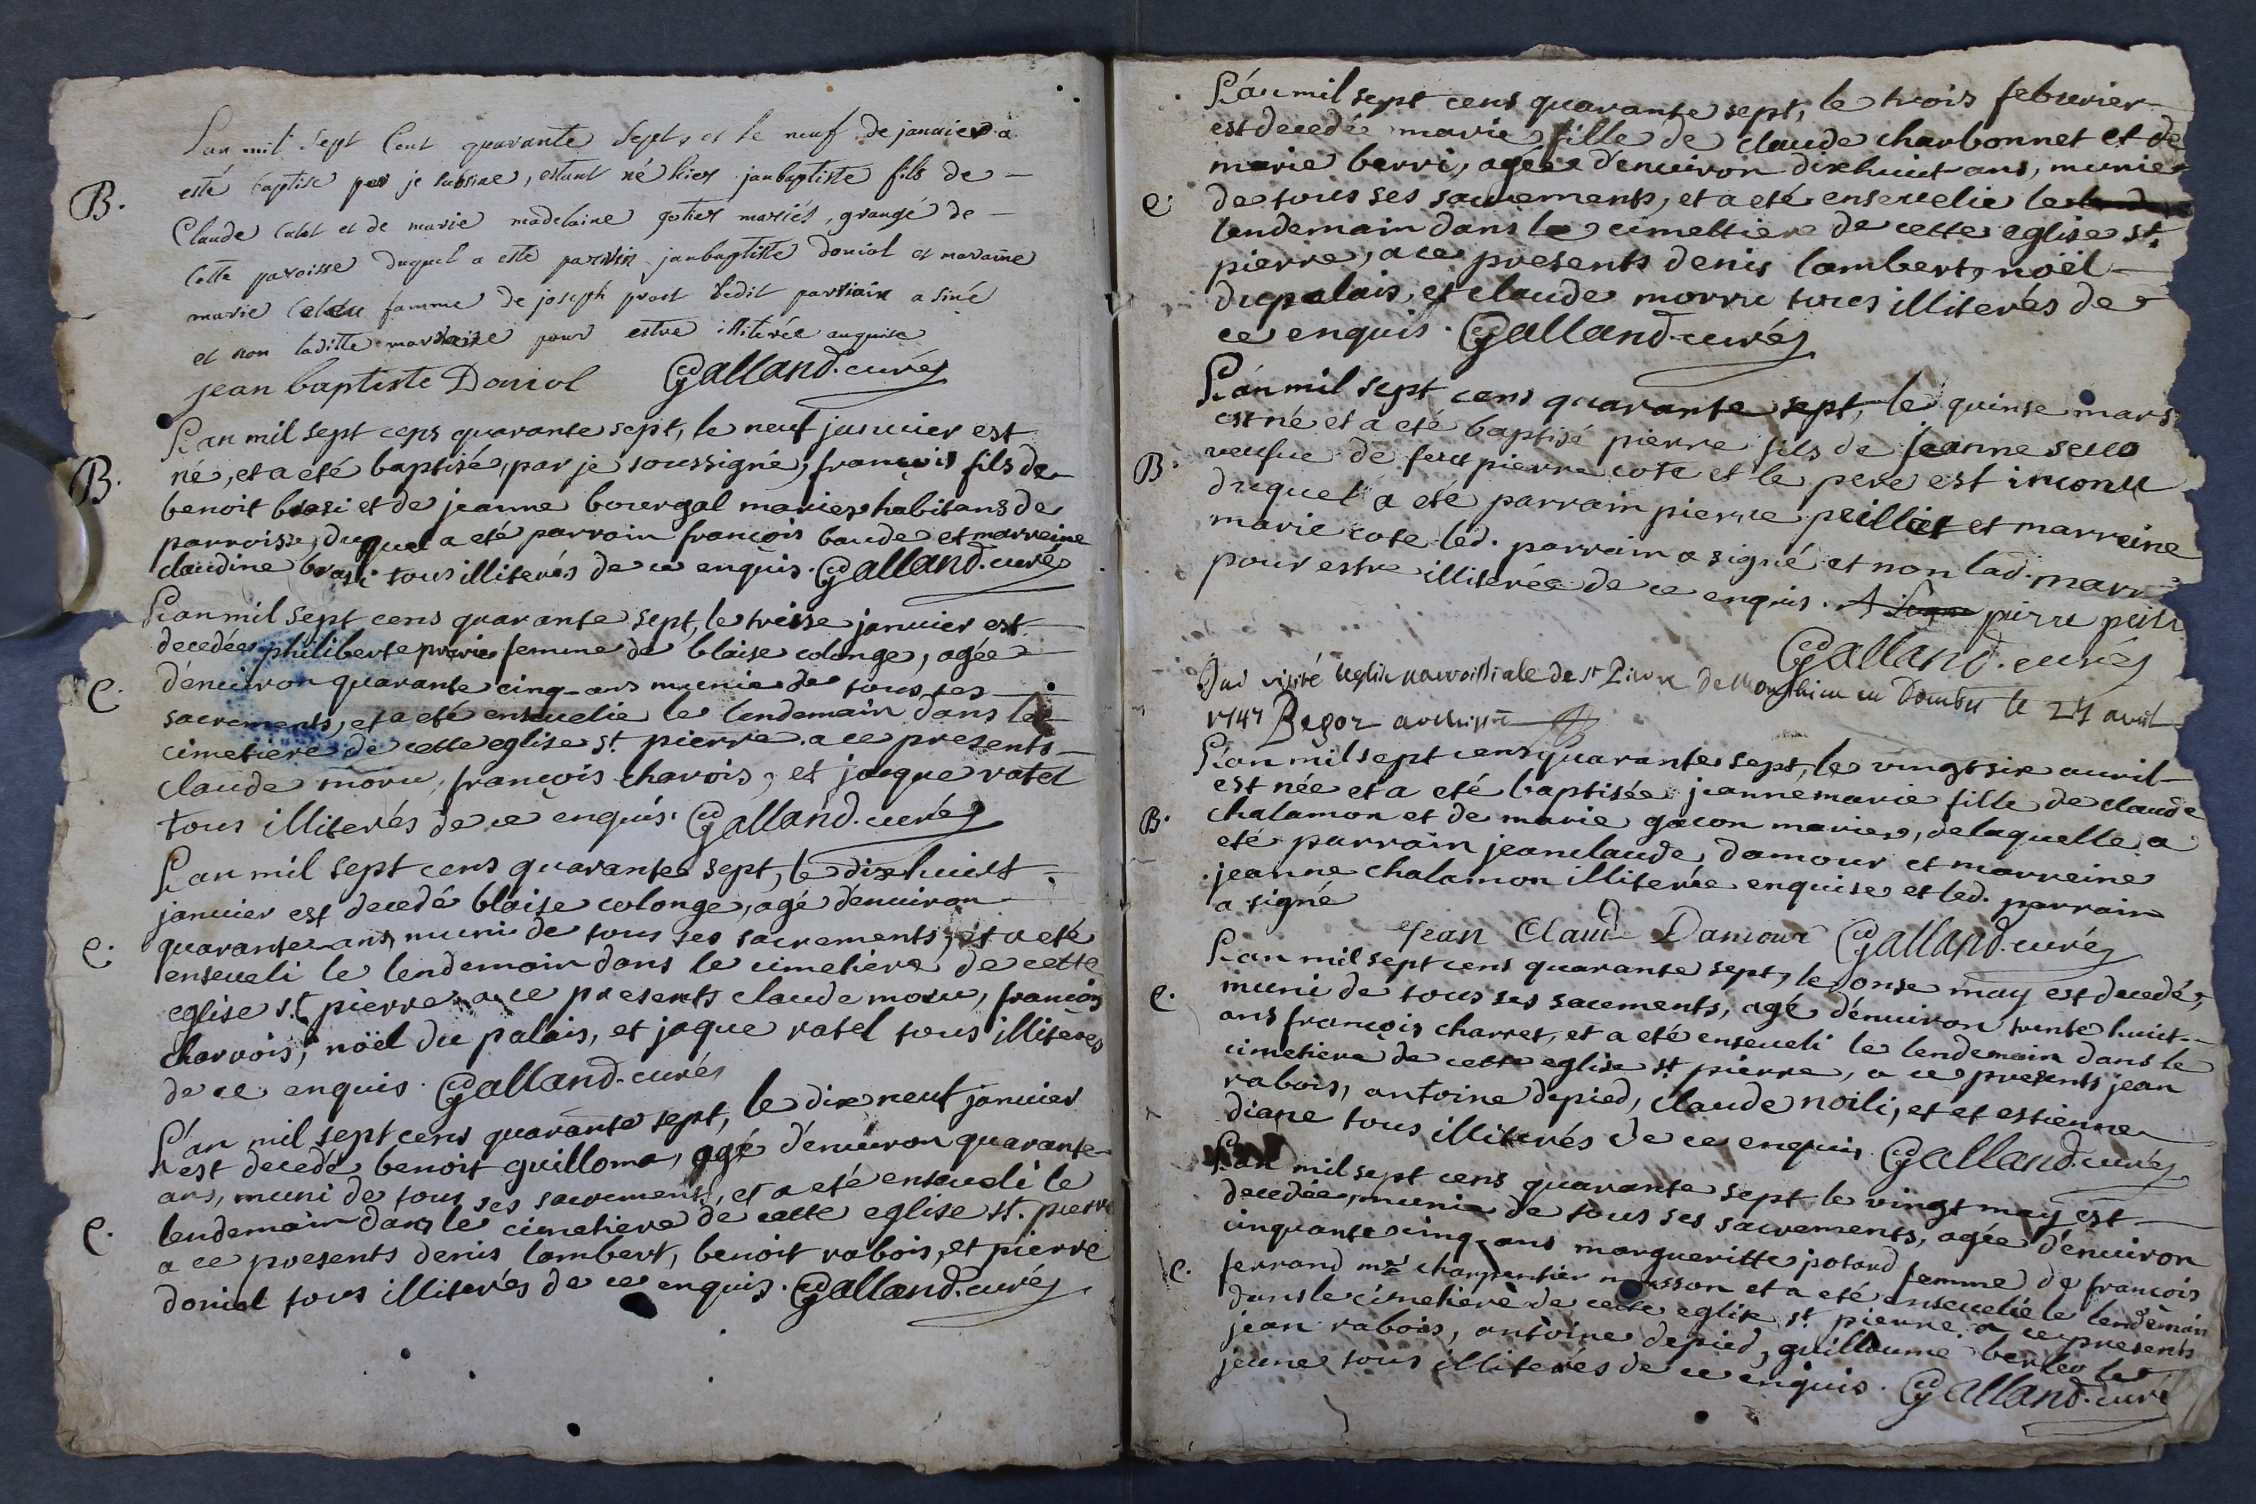 L'an mil sept Cent quarante Sept, et le neuf de janvier a
B. esté baptisé par je subsiné, estant né hier janbaptiste fils de
Claude Catet et de marie madelaine gotier mariés, grangé de
Cette paroisse duquel a esté parrin janbaptiste doniol et maraine
marie famme de joseph prost ledit parrain a siné
et non laditte marraine pour estre illiterée anquise
jean baptiste Doniol Galland. curé
L'an mil sept cens quarante sept, le neuf janvier est
B. né, et a eté baptisé, par je soussigné, françois fils de
benoit brasi et de jeanne bourgal mariés habitans de
parroisse, duquel a eté parrain françois baude et marreine
claudine brasi tous illiterés de ce enquis. Galland. curé
L'an mil sept cens quarante sept, le treise janvier est
decedée philiberte femme de blaise colonge, agée
C. d'environ quarante cinq ans munie de tous ses
sacrements, et a eté ensevelie le lendemain dans le
cimetiere de cette eglise st. pierre. a ce presents
claude moru, françois charvois, et jaque ratel
tous illiterés de ce enquis. Galland. curé
L'an mil sept cens quarante sept, le dixhuict
janvier est decedé blaise colonge, agé d'environ
C. quarante ans, muni de tous ses sacrements, et a eté
enseveli le lendemain dans le cimetiere de cette
eglise st. pierre a ce presents claude moru, françois
charvois, noël du palais, et jaque ratel tous illiterés
de ce enquis. Galland. curé
L'an mil sept cens quarante sept, le dixneuf janvier
est decedé benoit guilloma, agé d'environ quarante
ans, muni de tous ses sacrements, et a eté enseveli le
C. lendemain dans le cimetiere de cette eglise st. pierre
a ce presents denis lambert, benoit rabois, et pierre
doniol tous illiterés de ce enquis. Galland. curé
L'an mil sept cens quarante sept, le trois febvrier
est decedé marie fille de claude charbonnet et de
marie berri, agée d'environ dixhuict ans, munie
C. de tous ses sacrements, et a eté ensevelie le
lendemain dans le cimettiere de cette eglise st.
pierre, a ce presents denis lambert, noël
dupalais, et claude morru tous illiterés de
ce enquis. Galland. curé
L'an mil sept cens quarante sept, le quinse mars
est né et a eté baptisé pierre fils de jeanne seuo
B. veufue de feu pierre cote et le pere est inconu
duquel a eté parrain pierre peilliet et marreine
marie cote led. parrain a signé et non lad. marr
pour estre illiterée de ce enquis. pierre peili
Galland. curé
Jai visité leglise parroissiale de st Pierre de Monthieu en Dombes le 27 avril
1747 Begoz archiprê
L'an mil sept cens quarante sept, le vingt six avril
est née et a eté baptisée jeanne marie fille de claude
B. chalamon et de marie gacon mariés, delaquelle a
eté parrain jeanclaude, damour et marreine
jeanne chalamon illiterée enquise et led. parrain
a signé
Jean Claude Damour Galland. curé
L'an mil sept cens quarante sept, le onse may est decedé,
C. muni de tous ses sacements, agé d'environ trente huict
ans françois charret, et a eté enseveli le lendemain dans le
cimetiere de cette eglise st. pierre, a ce presents jean
rabois, antoine depied, claude noili, et et estienne
diane tous illiterés de ce enquis. Galland. curé
L'an mil sept cens quarante sept le vingt may est
decedée, munie de tous ses sacrements, agée d'environ
cinquante cinq ans margueritte potard femme de françois
C. ferrand mre. charpentier masson et a eté ensevelie le lendemain
dans le cimetiere de cette eglise st. pierre. a ce presents
jean rabois, antoine depied, guillaume berlio le
jeune tous illiterés de ce enquis. Galland. curé